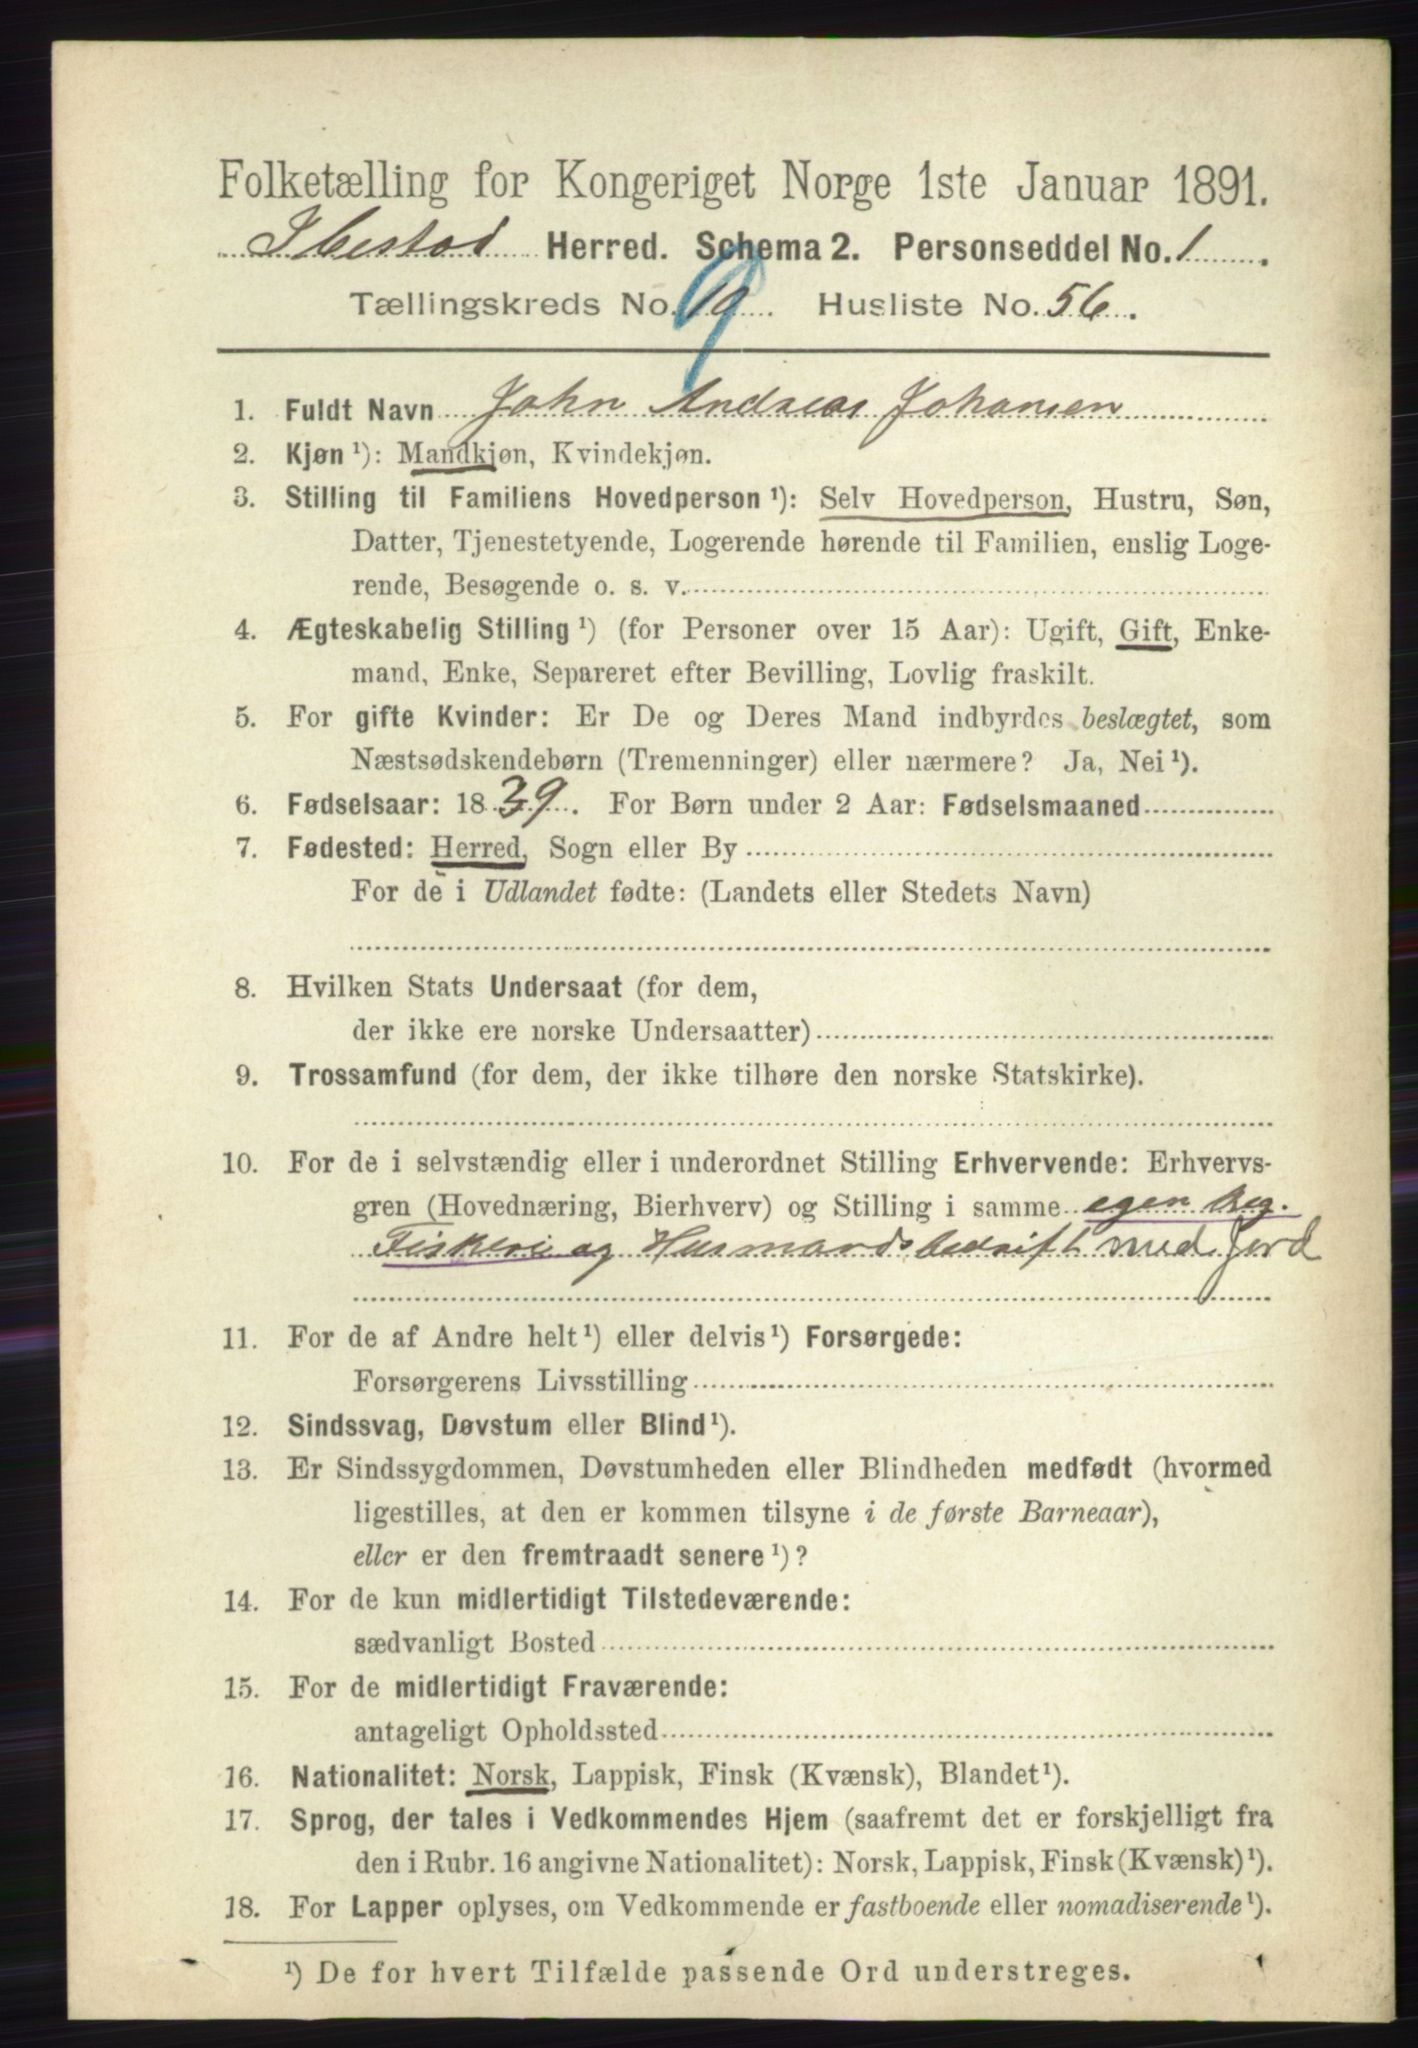 Folketælling for Kongeriget Norge 1ste Januar 1891.
Ibestad Herred. Schema 2. Personseddel No. 1.
Tællingskreds No. 9 Husliste No. 56.
1. Fuldt Navn John Andreas Johansen
2. Kjøn ¹): Mandkjøn, Kvindekjøn.
3. Stilling til Familiens Hovedperson ¹): Selv Hovedperson, Hustru, Søn,
Datter, Tjenestetyende, Logerende hørende til Familien, enslig Loge-
rende, Besøgende o. s. v.
4. Ægteskabelig Stilling ¹) (for Personer over 15 Aar): Ugift, Gift, Enke-
mand, Enke, Separeret efter Bevilling, Lovlig fraskilt.
5. For gifte Kvinder: Er De og Deres Mand indbyrdes beslægtet, som
Næstsødskendebørn (Tremenninger) eller nærmere? Ja, Nei ¹).
6. Fødselsaar: 1839. For Børn under 2 Aar: Fødselsmaaned
7. Fødested: Herred, Sogn eller By
For de i Udlandet fødte: (Landets eller Stedets Navn)
8. Hvilken Stats Undersaat (for dem,
der ikke ere norske Undersaatter)
9. Trossamfund (for dem, der ikke tilhøre den norske Statskirke).
10. For de i selvstændig eller i underordnet Stilling Erhvervende: Erhvervs-
gren (Hovednæring, Bierhverv) og Stilling i samme egen Reg.
Fiskeri og Husmandsbedrift med Jord
11. For de af Andre helt ¹) eller delvis ¹) Forsørgede:
Forsørgerens Livsstilling
12. Sindssvag, Døvstum eller Blind ¹).
13. Er Sindssygdommen, Døvstumheden eller Blindheden medfødt (hvormed
ligestilles, at den er kommen tilsyne i de første Barneaar),
eller er den fremtraadt senere ¹)?
14. For de kun midlertidigt Tilstedeværende:
sædvanligt Bosted
15. For de midlertidigt Fraværende:
antageligt Opholdssted
16. Nationalitet: Norsk, Lappisk, Finsk (Kvænsk), Blandet ¹).
17. Sprog, der tales i Vedkommendes Hjem (saafremt det er forskjelligt fra
den i Rubr. 16 angivne Nationalitet): Norsk, Lappisk, Finsk (Kvænsk) ¹).
18. For Lapper oplyses, om Vedkommende er fastboende eller nomadiserende ¹).
¹) De for hvert Tilfælde passende Ord understreges.